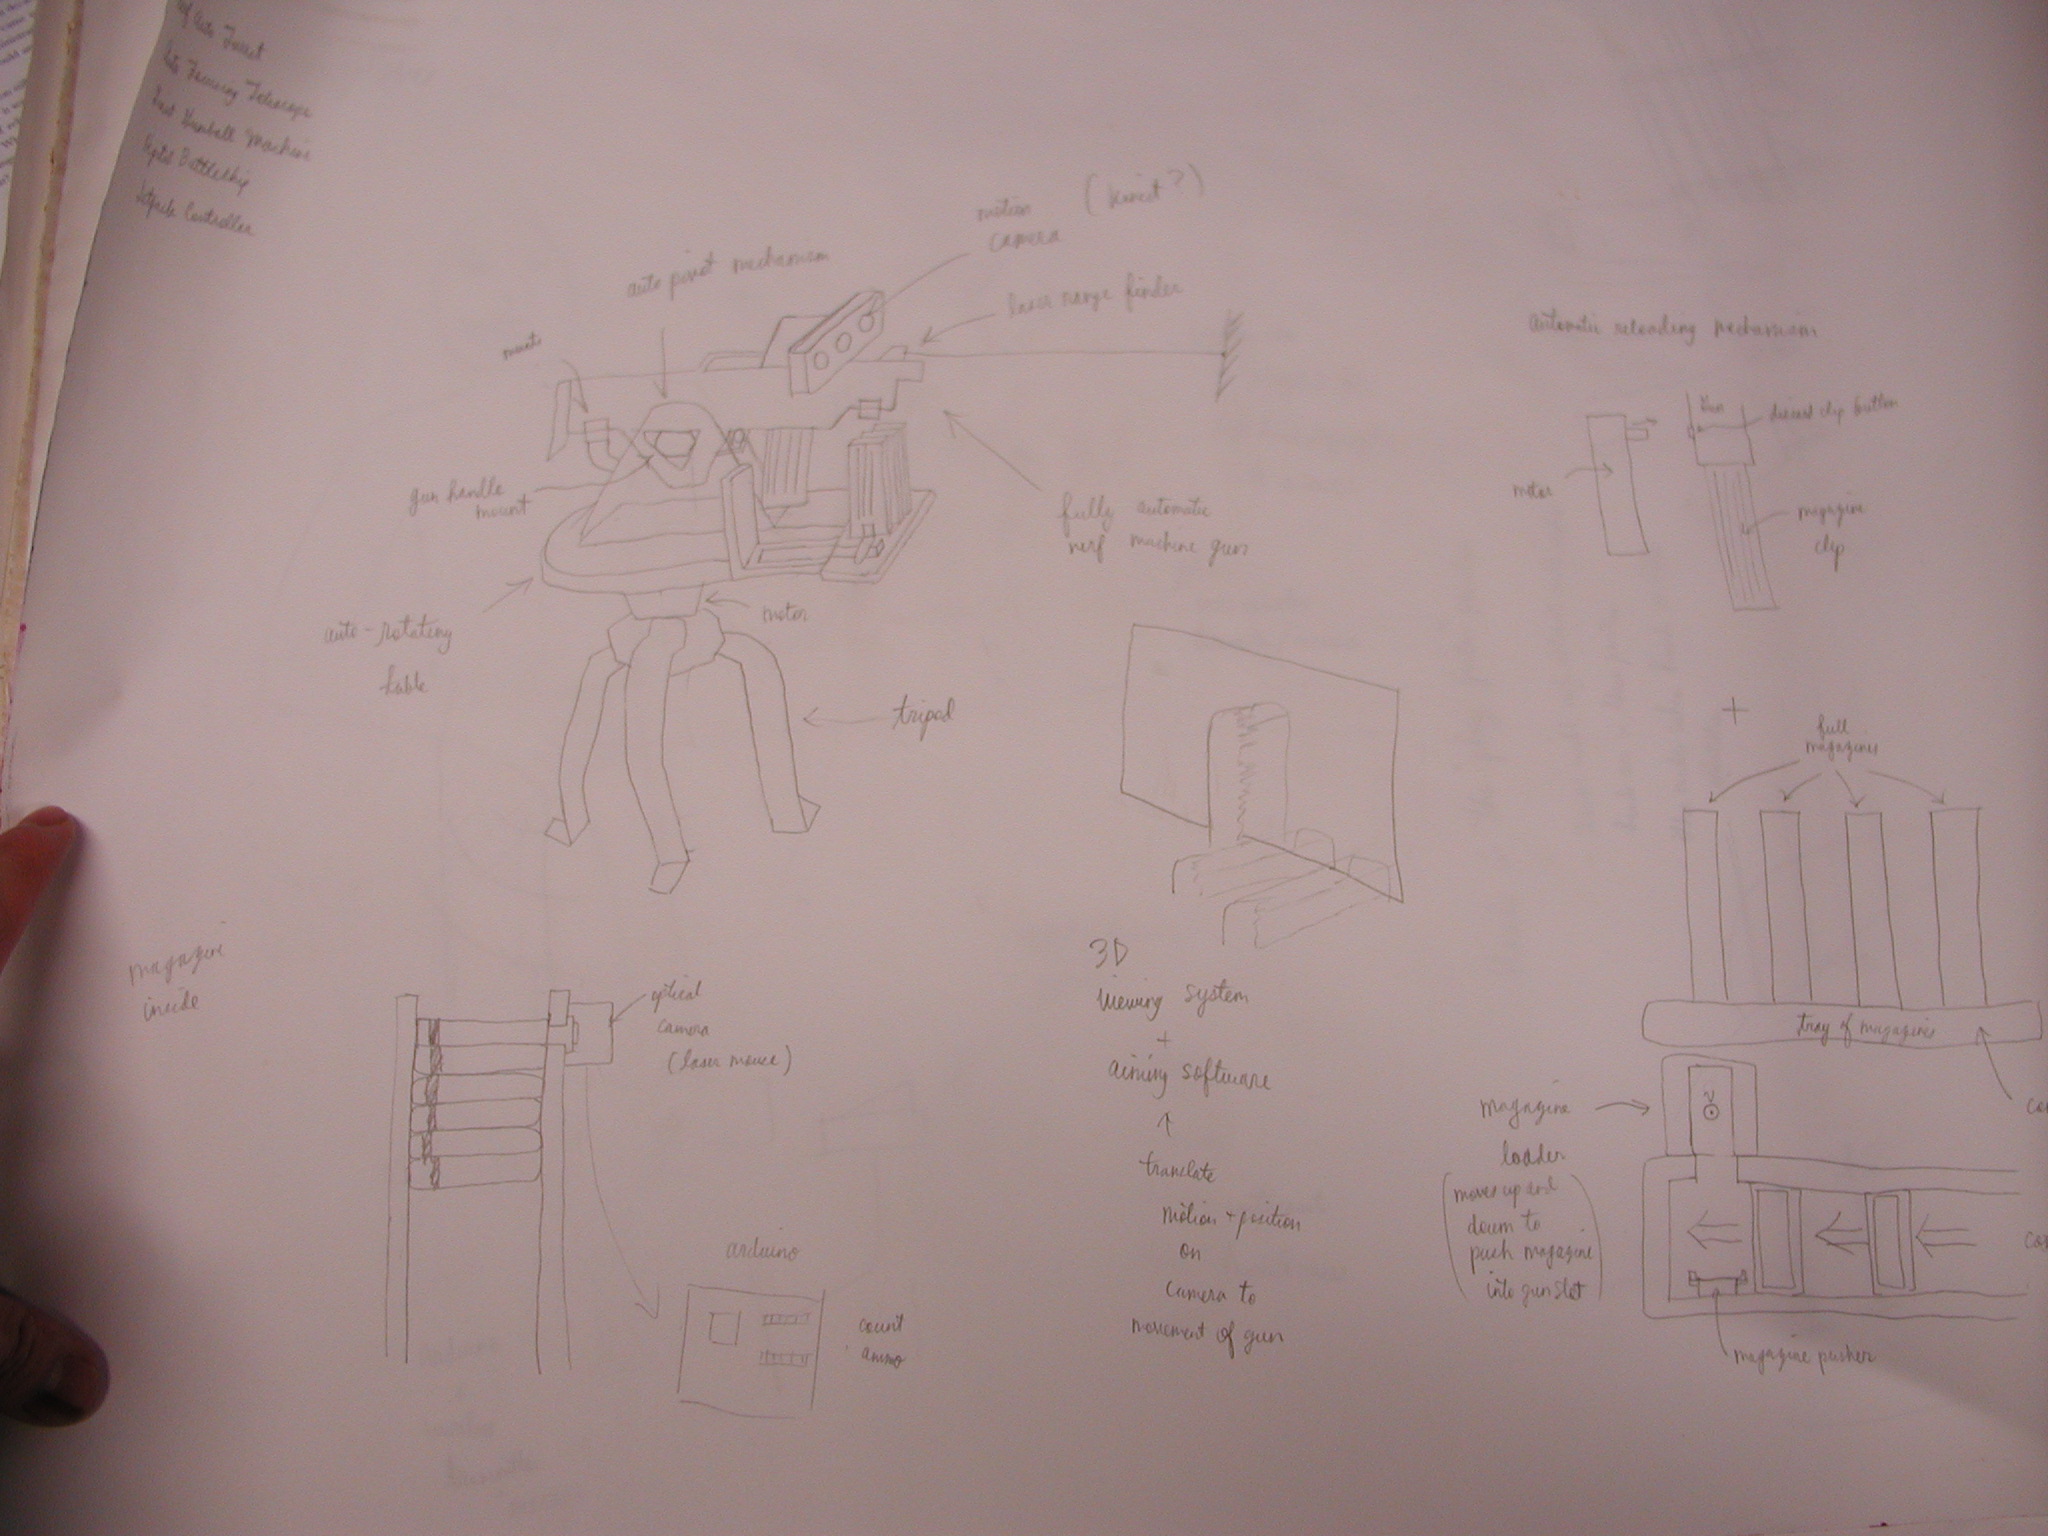 Auto Turret
Auto Focusing Telescope
Gumball Machine
Battleship
Controller
motion (kinect?)
camera
auto pivot mechanism
laser range finder
mounts
gun handle
mount
fully automatic
nerf machine gun
auto-rotating
table
motor
tripod
automatic reloading mechanism
Gun
clip button
motor
magazine
clip
+
full
magazines
tray of magazines
magazine
loader
(moves up and
down to
push magazine
into gun slot)
magazine pusher
magazine
inside
optical
camera
(laser mouse)
arduino
count
ammo
3D
viewing system
+
aiming software
translate
motion + position
on
camera to
movement of gun